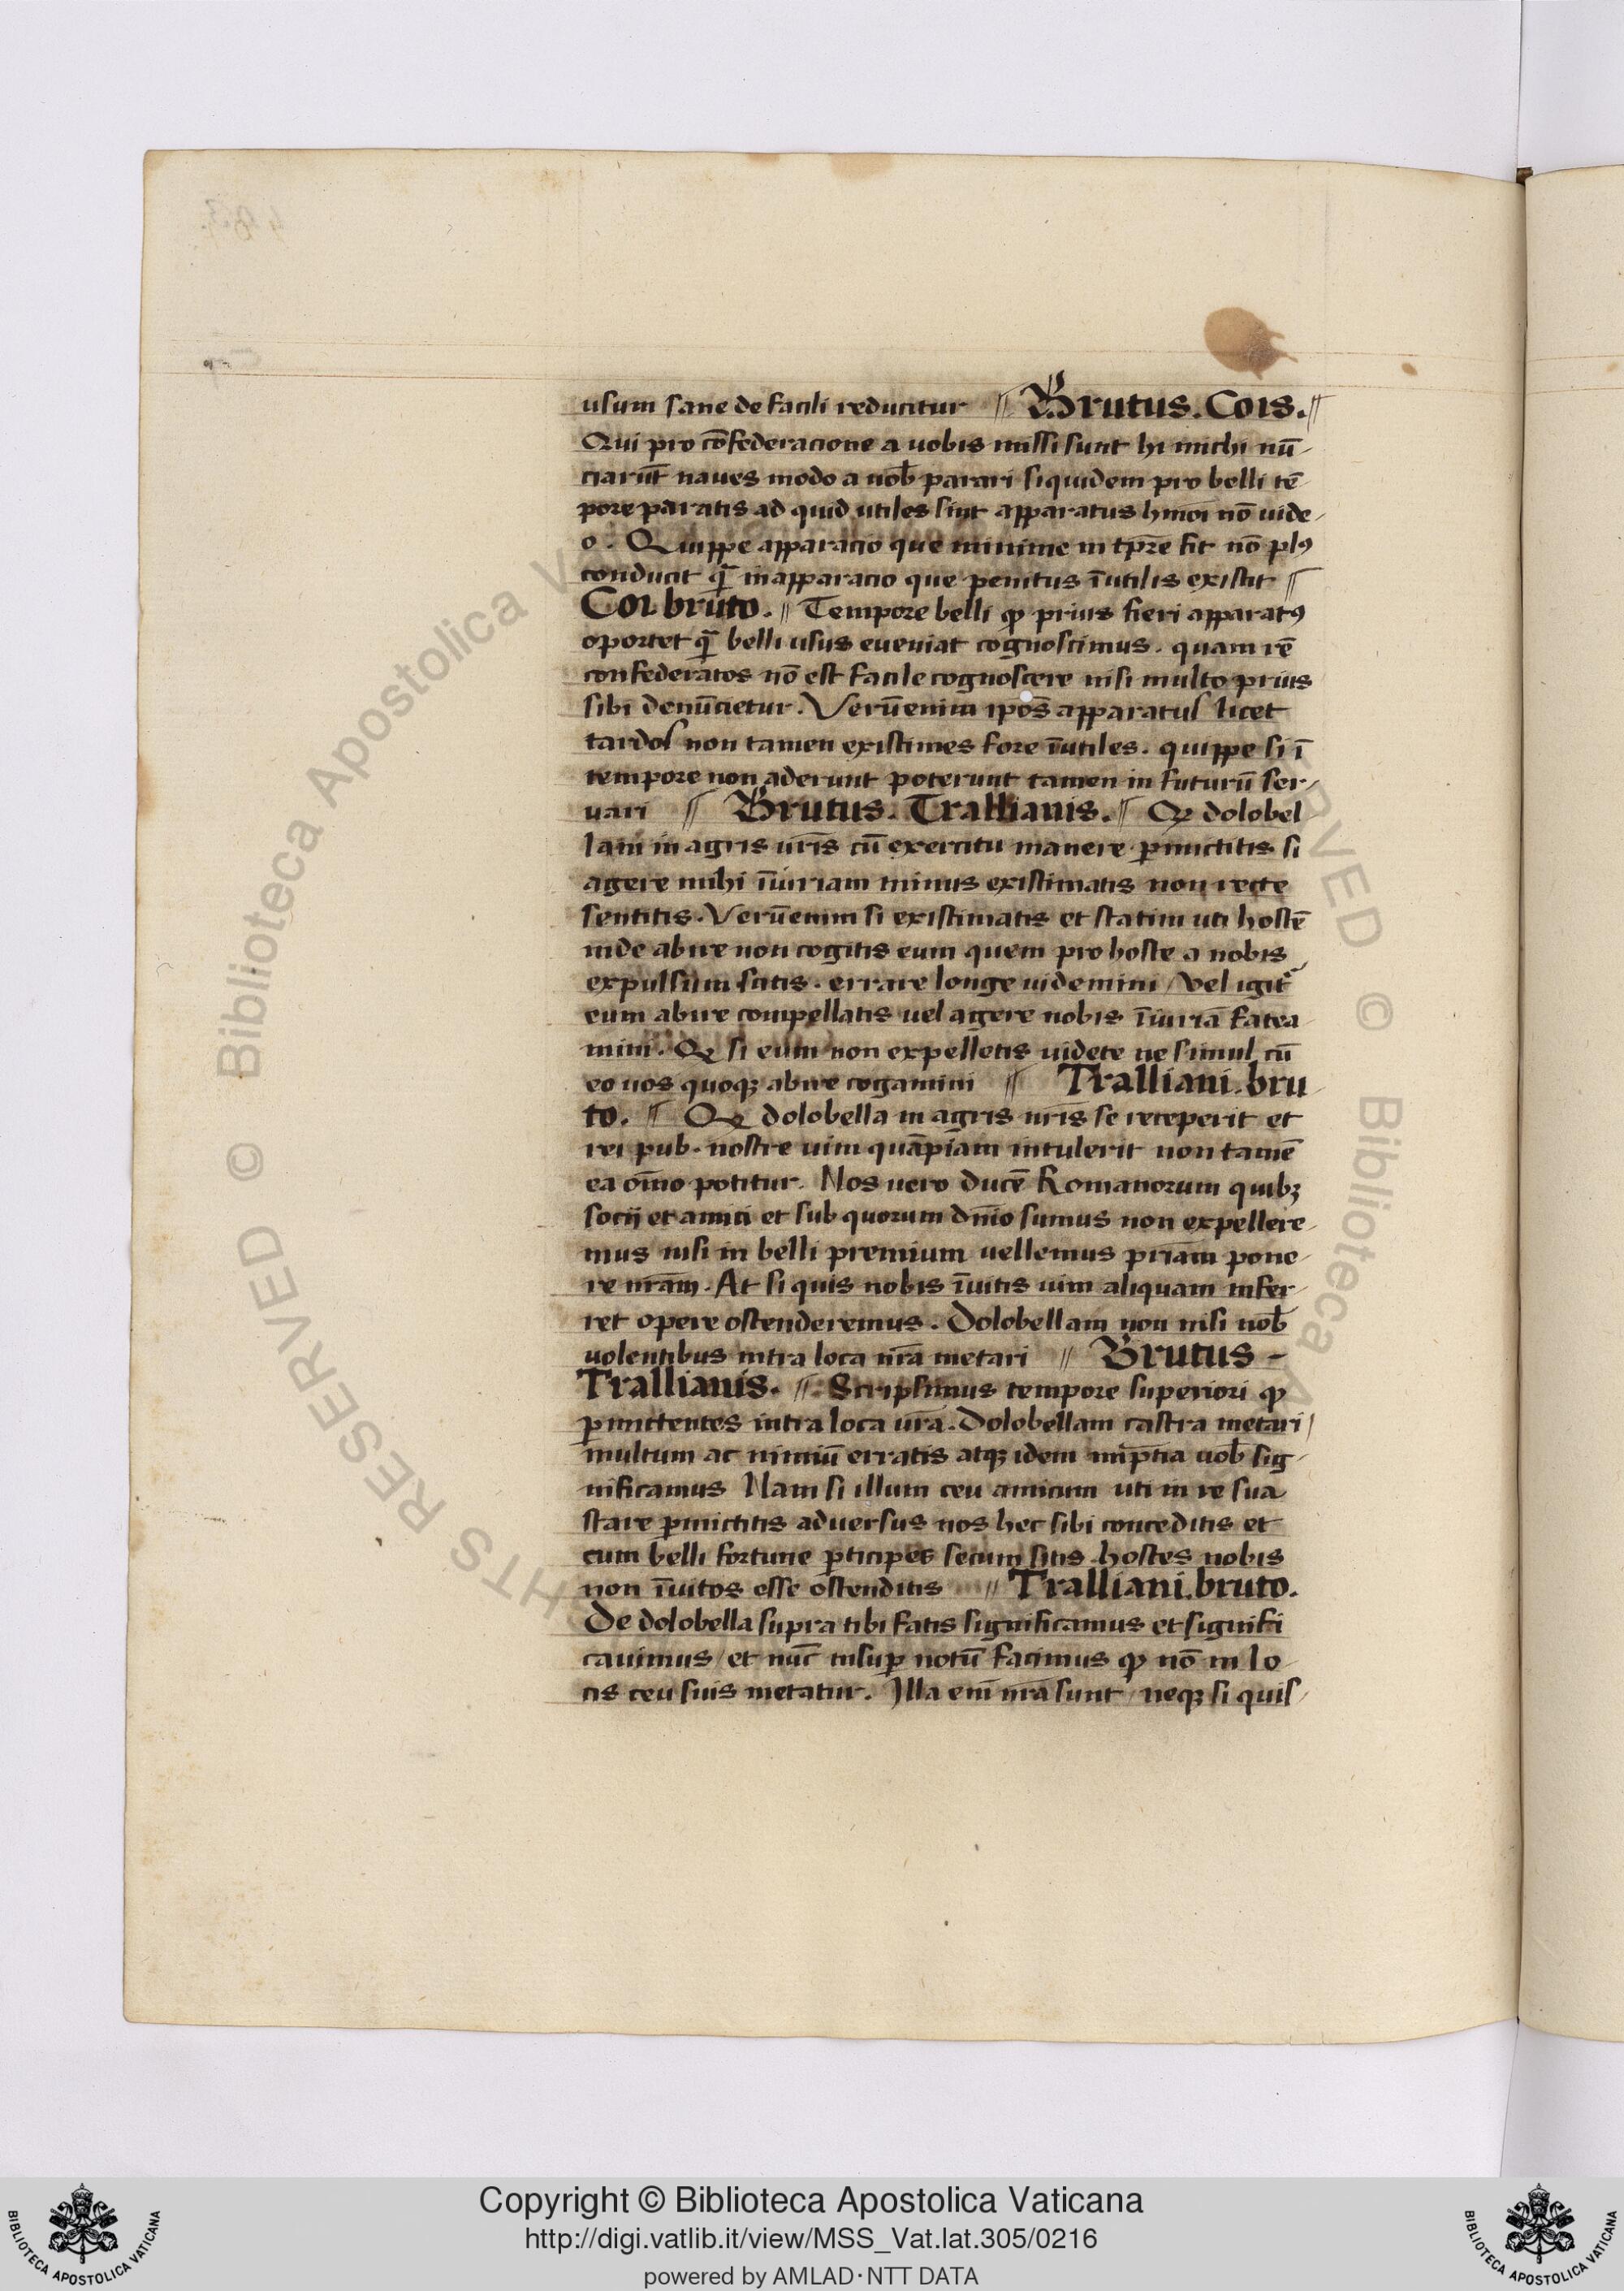 usum sane de facili reducitur // Brutus. Cois. //
Qui pro cōfederacione a uobis missi sunt hi michi nū-
ciarūt naues modo a uob̄ parari siquidem pro belli tē
pore paratis ad quid utiles sint apparatus hmōi nō uide-
o. Quippe apparacio que minime in tp̄re fit nō plꝰ
conducit qᷓ inapparacio que penitus īutilis existit //
Coi bruto. // Tempore belli ꝙ prius fieri apparatꝰ
oportet qᷓ belli usus eueniat cognoscimus. quam rē
confederatos nō est facile cognoscere nisi multo prius
sibi denūcietur. Verūenim ip̄os apparatus licet
tardos non tamen existimes fore īutiles. quippe si ī
tempore non aderunt poterunt tamen in futurū ser-
uari // Brutus. Trallianis. // Q dolobel
lam in agris ur̄is cū exercitu manere ꝑmictitis si
agere mihi īiuriam minus existimatis non recte
sentitis. Verūenim si existimatis et statim uti hostē
inde abire non cogitis eum quem pro hoste a nobis
expulsum scitis. errare longe uidemini / vel igit᷑
eum abire compellatis uel agere nobis īiuriā fatea
mini. Q si eum non expelletis uidete ne simul cū
eo uos quoqꝫ abire cogamini // Tralliani. bru-
to. // Q dolobella in agris nr̄is se receperit et
rei pub. nostre uim quāpiam intulerit non tamē
ea oīno potitur. Nos uero ducē Romanorum quibꝫ
socij et amici et sub quorum dn̄io sumus non expellere-
mus nisi in belli premium uellemus pr̄iam pone-
re nr̄am. At si quis nobis īuitis uim aliquam infer-
ret opere ostenderemus. Dolobellam non nisi nob̄
uolentibus intra loca nr̄a metari // Brutus -
Trallianis. // Scripsimus tempore superiori ꝙ
ꝑmictentes intra loca ur̄a. Dolobellam castra metari /
multum ac nimiū erratis atqꝫ idem imp̄tia uob̄ sig-
nificamus Nam si illum ceu amicum uti in re sua
stare ꝑmictitis aduersus nos hec sibi conceditis et
cum belli fortune ꝑticipes secum sitis. hostes nobis
non īuitos esse ostenditis // Tralliani. bruto.
De dolobella supra tibi satis significamus et signifi
cauimus / et nūc insuꝑ notū facimus ꝙ nō in lo-
cis ceu suis metatur. Illa enī nr̄a sunt / neqꝫ si quis-
Copyright © Biblioteca Apostolica Vaticana
http://digi.vatlib.it/view/MSS_Vat.lat.305/0216
powered by AMLAD · NTT DATA
BIBLIOTECA APOSTOLICA VATICANA
BIBLIOTECA APOSTOLICA VATICANA